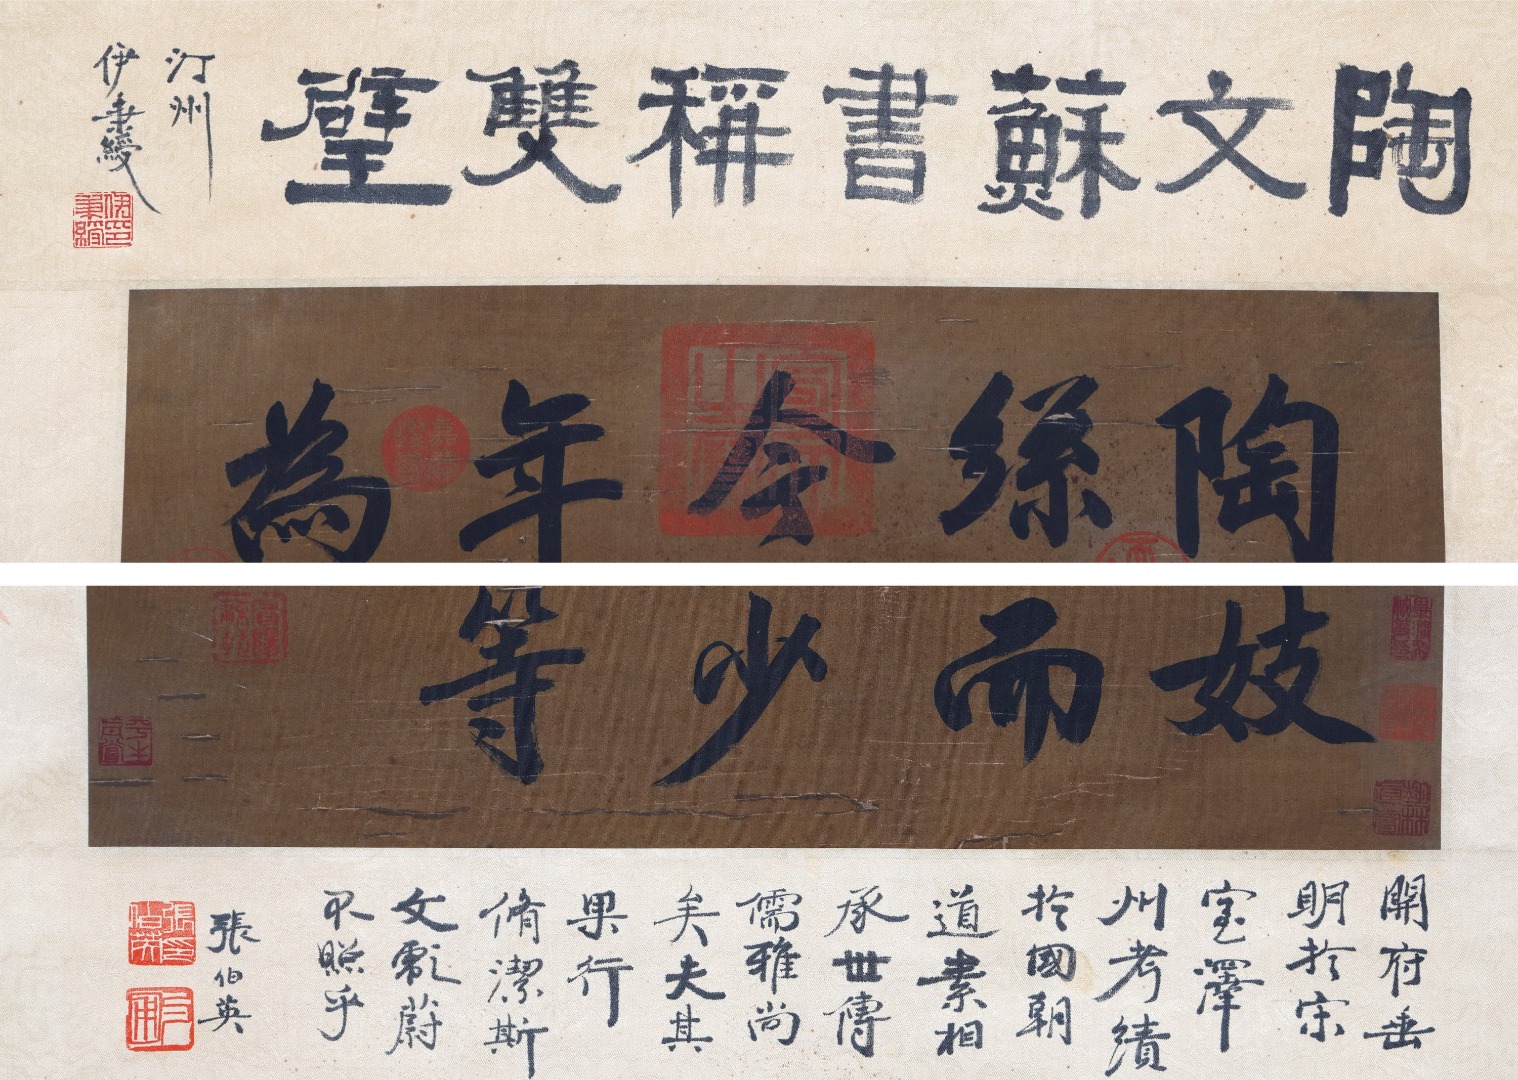 陶文蘇書稱雙璧
汀州
伊秉綬
陶
絲
令
年
為
妓
而
少
等
開府垂
明於宋
室澤
州考績
於國朝
道素相
承世傳
儒雅尚
矣夫其
果行
脩潔斯
文彪蔚
不照乎
張伯英